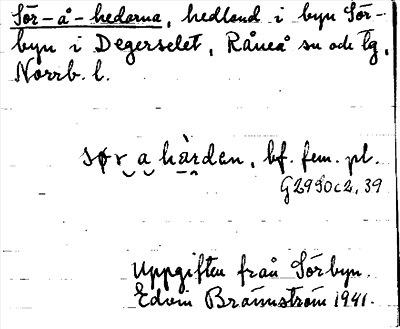 Sör-å-hedarna, hedland i byn Sör-
byn i Degerselet, Råneå sn och tg,
Norrb. l.
sør a hàrden, bf. fem. pl.
G2990c2,39
Uppgiften från Sörbyn.
Edvin Brännström 1941.